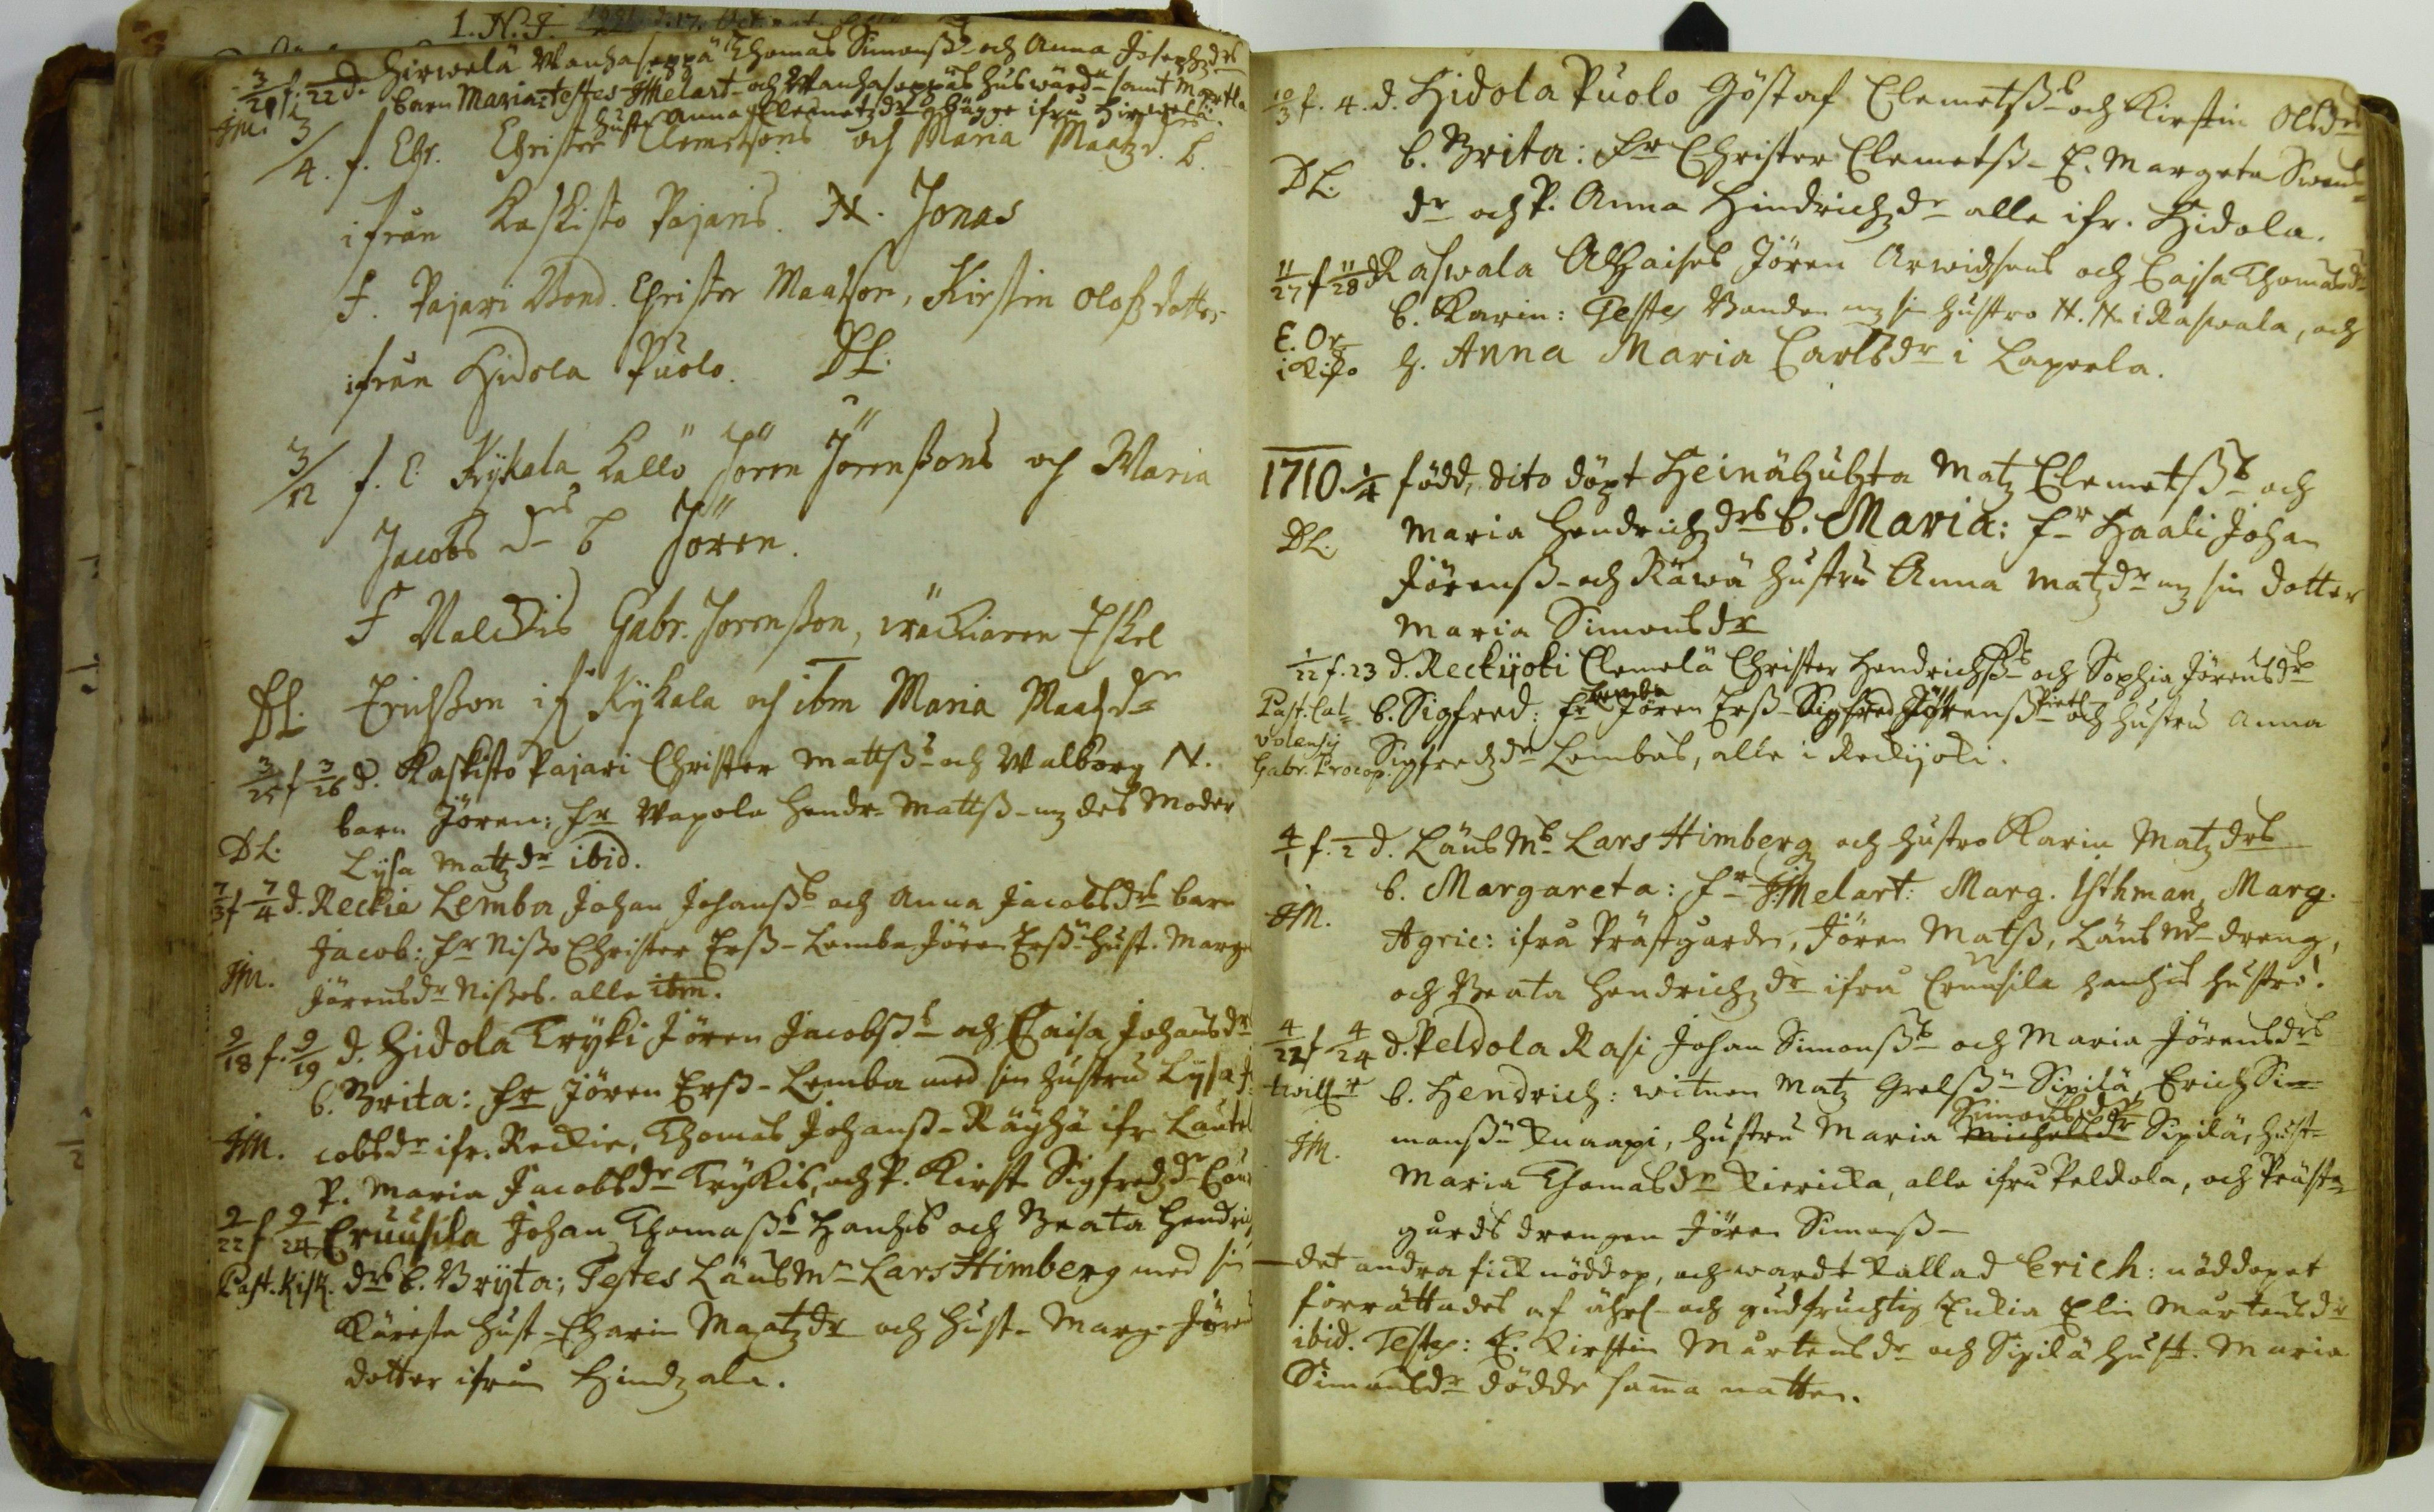 1. N. J.
3/20 f. 22 d. Hirwelä Wanhaseppä Thomas Simonsß och Anna Josephzdrs
barn Maria: testes JMelart och Wanhaseppäs huswärd samt Martha
JM. hustr Anna Clemetzdr bägge ifrån Hirwelä.
3/4. f. Chr. Christer Clemetsons och Maria Maatzd. b.
ifrån Kaskisto Pajaris. N. Jonas
F. Pajari Bond. Christer Maatson, Kirstin Olofzdotter
ifrån Hidola Puolo. DL.
3/12 f. C. Kÿkala Kallö Jören Jörenßons och Maria
Jacobs drs b Jören.
F Nalckis Gabr. Jorenßon, Eskel
DL. Erichßon if Kÿkala och ibm Maria Maatzdr
3/25 f 3/26 d. Kaskisto Pajari Christer Mattsß och Walborg N.
barn Jören: fr Wapola Hendr. Mattsß mz des Moder
DL. Lysa Mattzdr ibid.
7/3 f 7/4 d. Reckie Lemba Johan Johansß och Anna Jacobsdrs barn
Jacob: fr Nißo Christer Ersß Lemba Jören Ersß hust. Marge
JM. Jörensdr Nißos. alle ibm.
9/18 f. 9/19 d. Hidola Tryki Jören Jacobsß och Caisa Johansdrs
b. Brita: fr Jören Ersß Lemba med sin hustru Lysa J
JM. cobsdr ifr. Reckie, Thomas Johansß Räyhä ifr Lautel
P. Maria Jacobsdr Trykis, och P. Kirst Sigfredzdr
9/22 f 9/24 Eruusila Johan Thomasß Hanhis och Beata Hendrich
Past. Kisk. drs b. Brÿta; Testes Länsmn Lars Himberg med sin
Käreste hust. Charin Maatzdr och hust. Marg. Jören
dotter ifrån Hindzala.
10/3 f. 4. d. Hidola Puolo Göstaf Clemetsß och Kirstin Olsdrs
b. Brita: fr Christer Clemetsß E. Margeta Swens
DL. dr och P. Anna Hindrichzdr alle ifr. Hidola.
11/27 f 11/28 d Raswala Alhaises Jören Arwidsons och Caisa Thomasdrs
b. Karin: Testes Bonden mz sin hustro N. N. i Raswala, och
E. Or. i Kisko H. Anna Maria Carlsdr i Laperla.
1710. 1/4 född, dito döpt Heinähuhta Matz Clemetsß och
DL. Maria Hendrichzdrs b. Maria: fr Haali Johan
Jörensß och Räwä hustru Anna Matzdr mz sin dotter
Maria Simonsdr
1/22 f. 23 d. Reckijoki Clemelä Christer Hendrichsß och Sophia Jörensdrs
Past. Cal= b. Sigfred: fr Lemba Jören Ersß Sigfred Jörensß och hustru Anna
volensis Sigfredzdr Lembas, alle i Reckijoki.
Gabr. Procop.
4/1 f. 2 d. Länsms Lars Himberg och hustro Karin Matzdrs
b. Margareta: fr JMelart: Marg. Isthman, Marg.
JM. Agric: ifrå Prästgården, Jören Matsß, Länsms dreng,
och Beata Hendrichzdr ifrå Eruusila Hanhis hustro.
4/22 f 4/24 d. Peldola Rasi Johan Simonsß och Maria Jörensdrs
twill. b. Hendrich: witnen Matz Grelsß Sipilä, Erich Si=
JM. monsß Knaapi, hustru Maria Michelsdr Simonsdr Sipilä, hust=
Maria Thomasdr Kiericka, alle ifrå Peldola, och Präste=
gårds drengen Jören Simonsß
det andra fick nöddop, och wardt kallad Erich: nöddopet
förrättades af ährl. och gudfruchtig Enkia Elin Mårtensdr
ibid. Testes: E. Kirstin Mårtensdr och Sipilä hust. Maria
Simonsdr dödde sama natten.